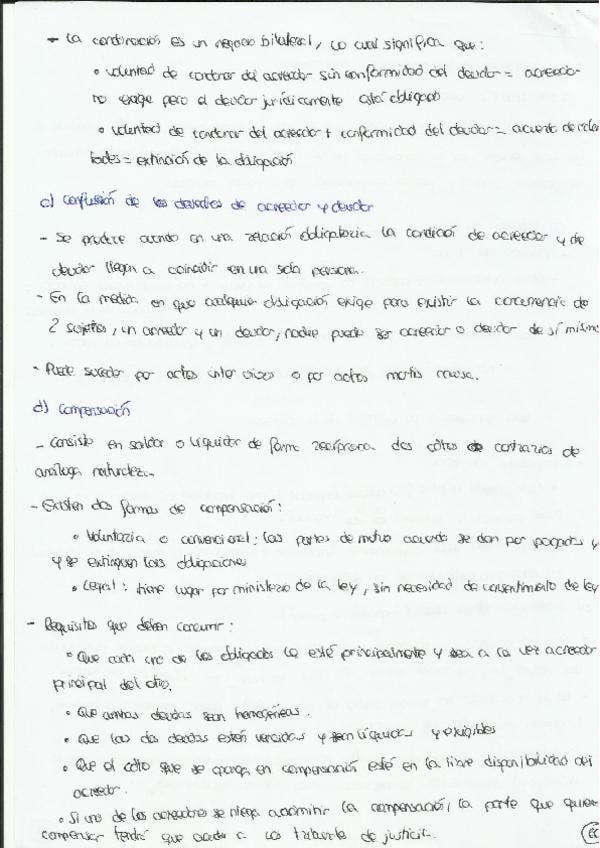 - La condonación es un negocio bilateral, lo cual significa que:
• voluntad de condonar del acreedor sin conformidad del deudor = acreedor
no exige pero el deudor jurídicamente está obligado
• voluntad de condonar del acreedor + conformidad del deudor = acuerdo de volun
tades = extinción de la obligación
c) Confusión de los derechos de acreedor y deudor
- Se produce cuando en una relación obligatoria la condición de acreedor y de
deudor llegan a coincidir en una sola persona.
- En la medida en que cualquier obligación exige para existir la concurrencia de
2 sujetos, un acreedor y un deudor, nadie puede ser acreedor o deudor de sí mismo
- Puede suceder por actos inter vivos o por actos mortis causa.
d) Compensación
- Consiste en saldar o liquidar de forma recíproca dos cdtos de contrarios de
análoga naturaleza.
- Existen dos formas de compensación:
• Voluntaria o convencional: las partes de mutuo acuerdo se dan por pagadas y
y se extinguen las obligaciones
• Legal: tiene lugar por ministerio de la ley, sin necesidad de consentimiento de ley
- Requisitos que deben concurrir:
• Que cada uno de los obligados lo esté principalmente y sea a la vez acreedor
principal del otro.
• Que ambas deudas sean homogéneas.
• Que las dos deudas estén vencidas y sean líquidas y exigibles
• Que el cdto que se oponga en compensación esté en la libre disponibilidad del
acreedor.
• Si uno de los acreedores se niega a admitir la compensación, la parte que quiere
compensar tendrá que acudir a los tribunales de justicia.